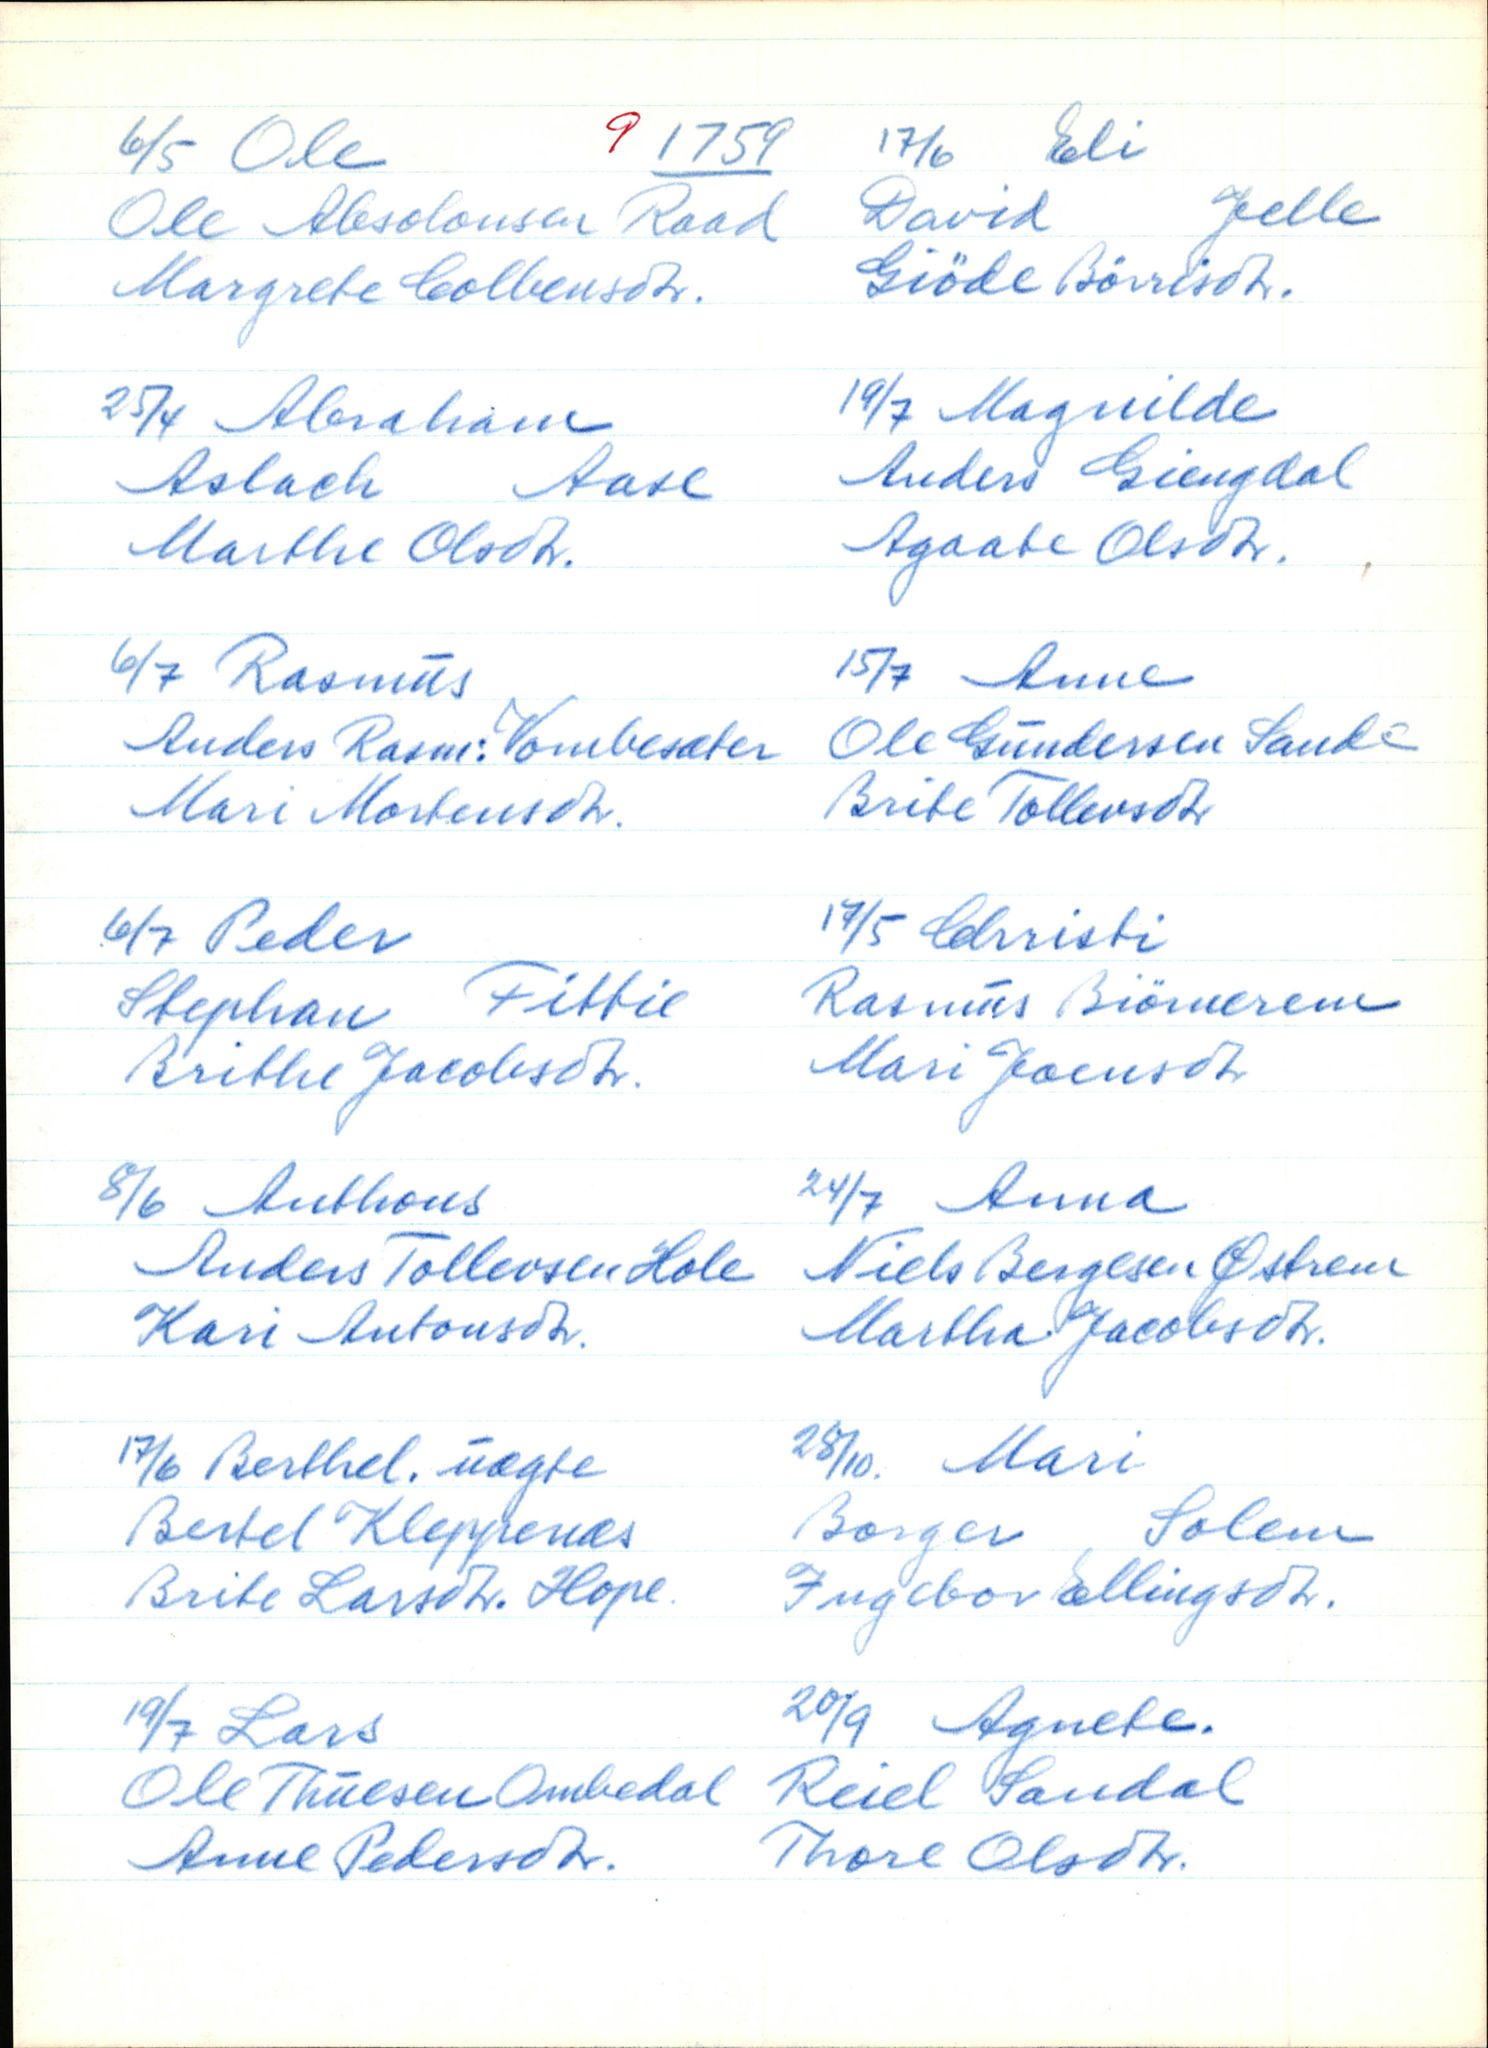 9 1759
6/5 Ole
Ole Absolonsen Raad
Margrete Colbensdtr.
25/4 Abraham
Aslach Aase
Marthe Olsdtr.
6/7 Rasmus
Anders Rasm: Vombesæter
Mari Mortensdtr.
6/7 Peder
Stephan Fittie
Brithe Jacobsdtr.
8/6 Anthons
Anders Tollevsen Hole
Kari Antonsdtr.
17/6 Berthel. uægte
Bertel Kleppenæs
Brite Larsdtr. Hope
19/7 Lars
Ole Thuesen Ombedal
Anne Pedersdtr.
17/6 Eli
David Jelle
Giöde Börrisdtr.
19/7 Magnilde
Anders Giengdal
Agaate Olsdtr.
15/7 Anne
Ole Gundersen Sande
Brite Tollevsdtr
17/5 Christi
Rasmus Biömerem
Mari Joensdtr
24/7 Anna
Niels Bergesen Østrem
Martha Jacobsdtr.
28/10. Mari
Borger Solem
Ingebor Ellingsdtr.
20/9 Agnete.
Reiel Sandal
Thore Olsdtr.